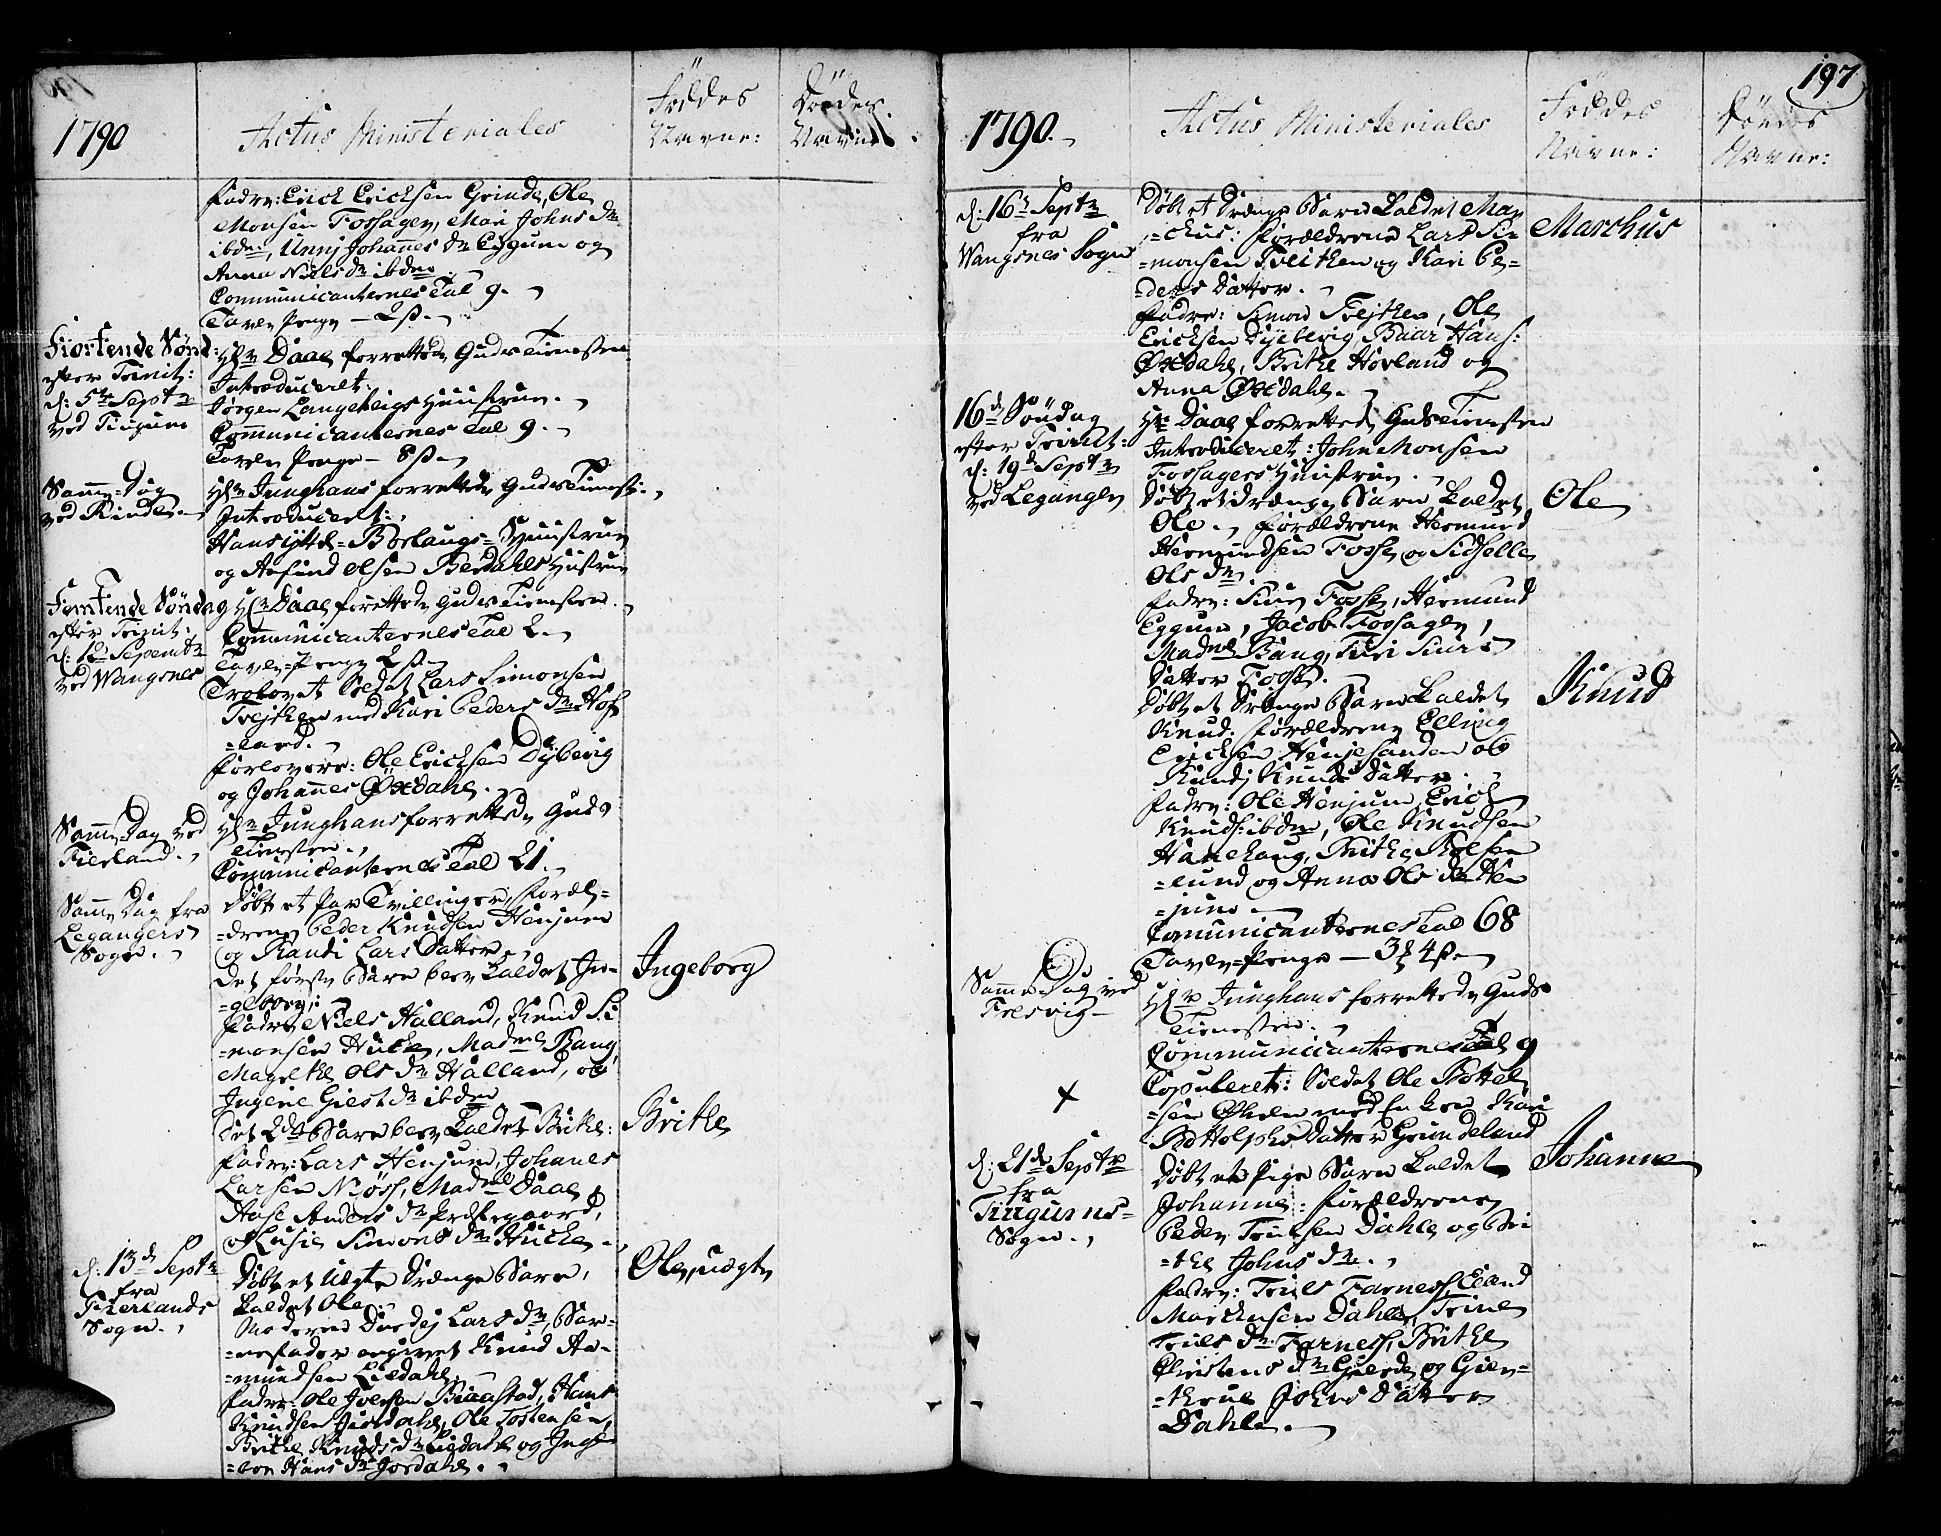 1790
Actus Ministeriales
Föddes
Navne:
Dödes
Navne
Fadre: Erich Erichsen Grinde, Ole
Monsen Fossagen, Mari Johns dr
ibdm, Unnj Johanes dr Eggum og
Anna Niels dr ibdm
Communicanternes Tal 9.
Tavle Penge — 2 ß
Fiortende Sönd:
efter Trinit:
d: 5te Septr
ved Tiugum
Hr Daae forrettede Guds Tienesten
Introduceret:
Jörgen Langeteigs Huustrue.
Communicanternes Tal 9.
Tavle Penge — 8 ß
Samme Dag
ved Rinde.
Hr Junghans forrettede Guds Tienest:
Introduceret:
Hans Borlaugs Huustrue
og Amund Olsen Berdahls Hustrue
Femtende Söndag
efter Trinit:
d: 12 Septemtr
ved Wangsnes
Hr Daae forrettede Guds Tienesten.
Communicanternes Tal 2.
Tavle-Penge 2 ß
Trolovet Soldat Lars Simonsen
Trejthen med Kari Peders dr Hof
=land.
Forlovere: Ole Erichsen Dyberig
og Johannes Öxdahl.
Samme Dag ved
Fierland.
Hr Junghans forrettede Guds
Tienesten.
Communicanternes Tal 21.
Samme Dag fra
Leganger
Sogn.
Döbt et par Tvillinger, foræl=
=drene Peder Knudsen Henjum
og Randi Lars Datter
Det förste Barn blev kaldet In=
=geborg:
Ingeborg
Fadre Niels Halland, Knud Si
=monsen Hucke, Madme Bang
Magelthe Ols dr Halland, og
Ingerie Giest dr ibdm
Det 2det Barn blev kaldet Brithe:
Brithe
Fadre: Lars Henjum, Johanes
Larsen Njöss, Madme Daae,
Aase Anders dr Præstegaard,
og Lusie Simons dr Hucke.
d: 13d Septr
fra
Fierlands
Sogn.
Döbt et Uægte Drenge Barn,
kaldet Ole.
Ole, uægte
Moderen Durdej Lars dr, Bar=
=nefader angivet Knud Am=
=mundsen Liedahl.
Fadre: Ole Joensen Skaastad, Hans
Knudsen Jordahl, Ole Tostensen,
Brithe Knuds dr Liedahl og Inge
=bor Hans dr Jordahl.
197
1790.
Actus Ministeriales
Föddes
Navne:
Dödes
Navne:
d: 16d Septr
fra
Wangsnes Sogn
Döbt et Drenge Barn kaldet Mar
=chus: forældrene Lars Si=
=monsen Treithen og Kari Pe=
=ders Datter.
Marchus
Fadre: Simon Trejthen, Ole
Erichsen Dyeberig, Baar Hans:
Öxdahl, Brithe Hovland og
Anna Öxdahl.
16d Söndag
efter Trinit:
d: 19d Septr
ved Leganger
Hr Daae forrettede Guds Tienesten
Introduceret: John Monsen
Fossagers Huustrue.
Döbt et drenge Barn kaldet
Ole. forældrene Hermund
Ole
Hermundsen Fosse og Sidselle
Ols dr
Fadre: Siur Fosse, Hermund
Eggum, Jacob Fossagen,
Madme Bang, Turi Siurs
Datter Fosse.
Döbt et Drenge Barn kaldet
Knud. forældrene Elling
Knud
Erichsen Henjesanden og
Randj Knuds Datter.
Fadre: Ole Henjum Erich
Knuds: ibdm, Ole Knudsen
Hanehaug, Brithe Skolsen
=lund og Anna Ols dr Hen
=jum.
Comunicanternes Tal 68
Tavle-Penge — 3 ꝶ 4 ß
Samme Dag ved
Fresvig
Hr Junghans forrettede Guds
Tienesten.
Communicanternes Tal 9
Copuleret: Soldat Ole Bottel
=sen Öhlen med Enken Kari
Botholphs Datter Grindeland
d: 21de Septr
fra
Tiugums=
Sogn.
Döbt et Pige Barn kaldet
Johanne: forældrene
Johanne
Peder Truelsen Dahle og Bri
=the Johns dr.
Fadre: Truls Farness, Eland
Marchusen Dahle, Trine
Truls dr Farness, Brithe
Christens dr Gierde og Gien=
=thrue Johns Datter
Dahle.